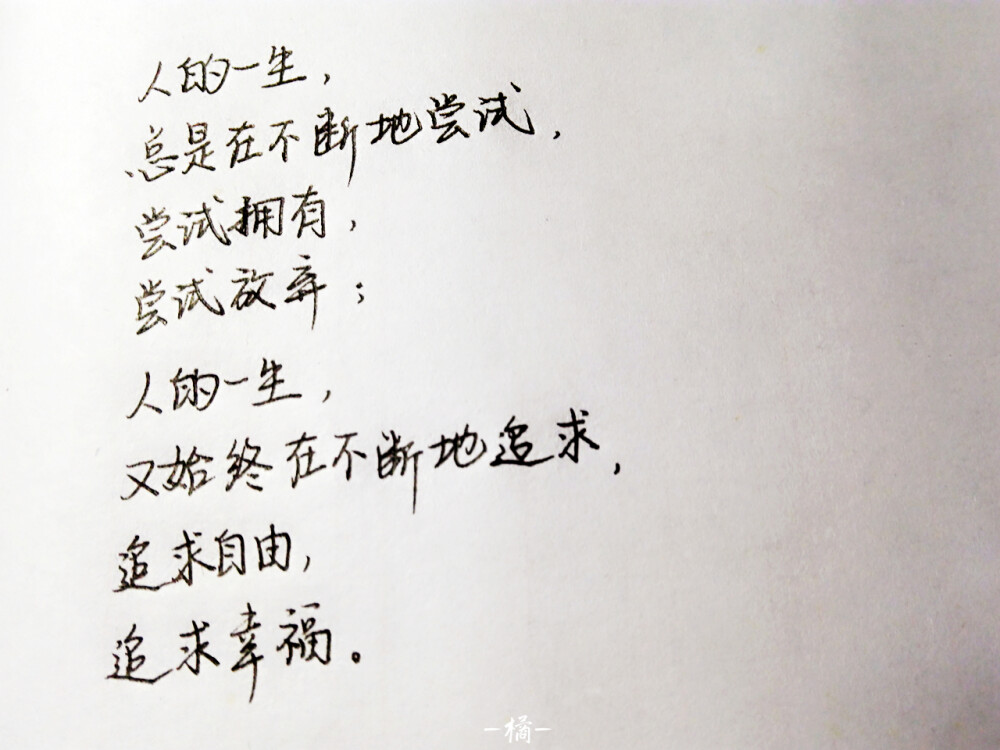 人的一生，
总是在不断地尝试，
尝试拥有，
尝试放弃；
人的一生，
又始终在不断地追求，
追求自由，
追求幸福。
-橘-